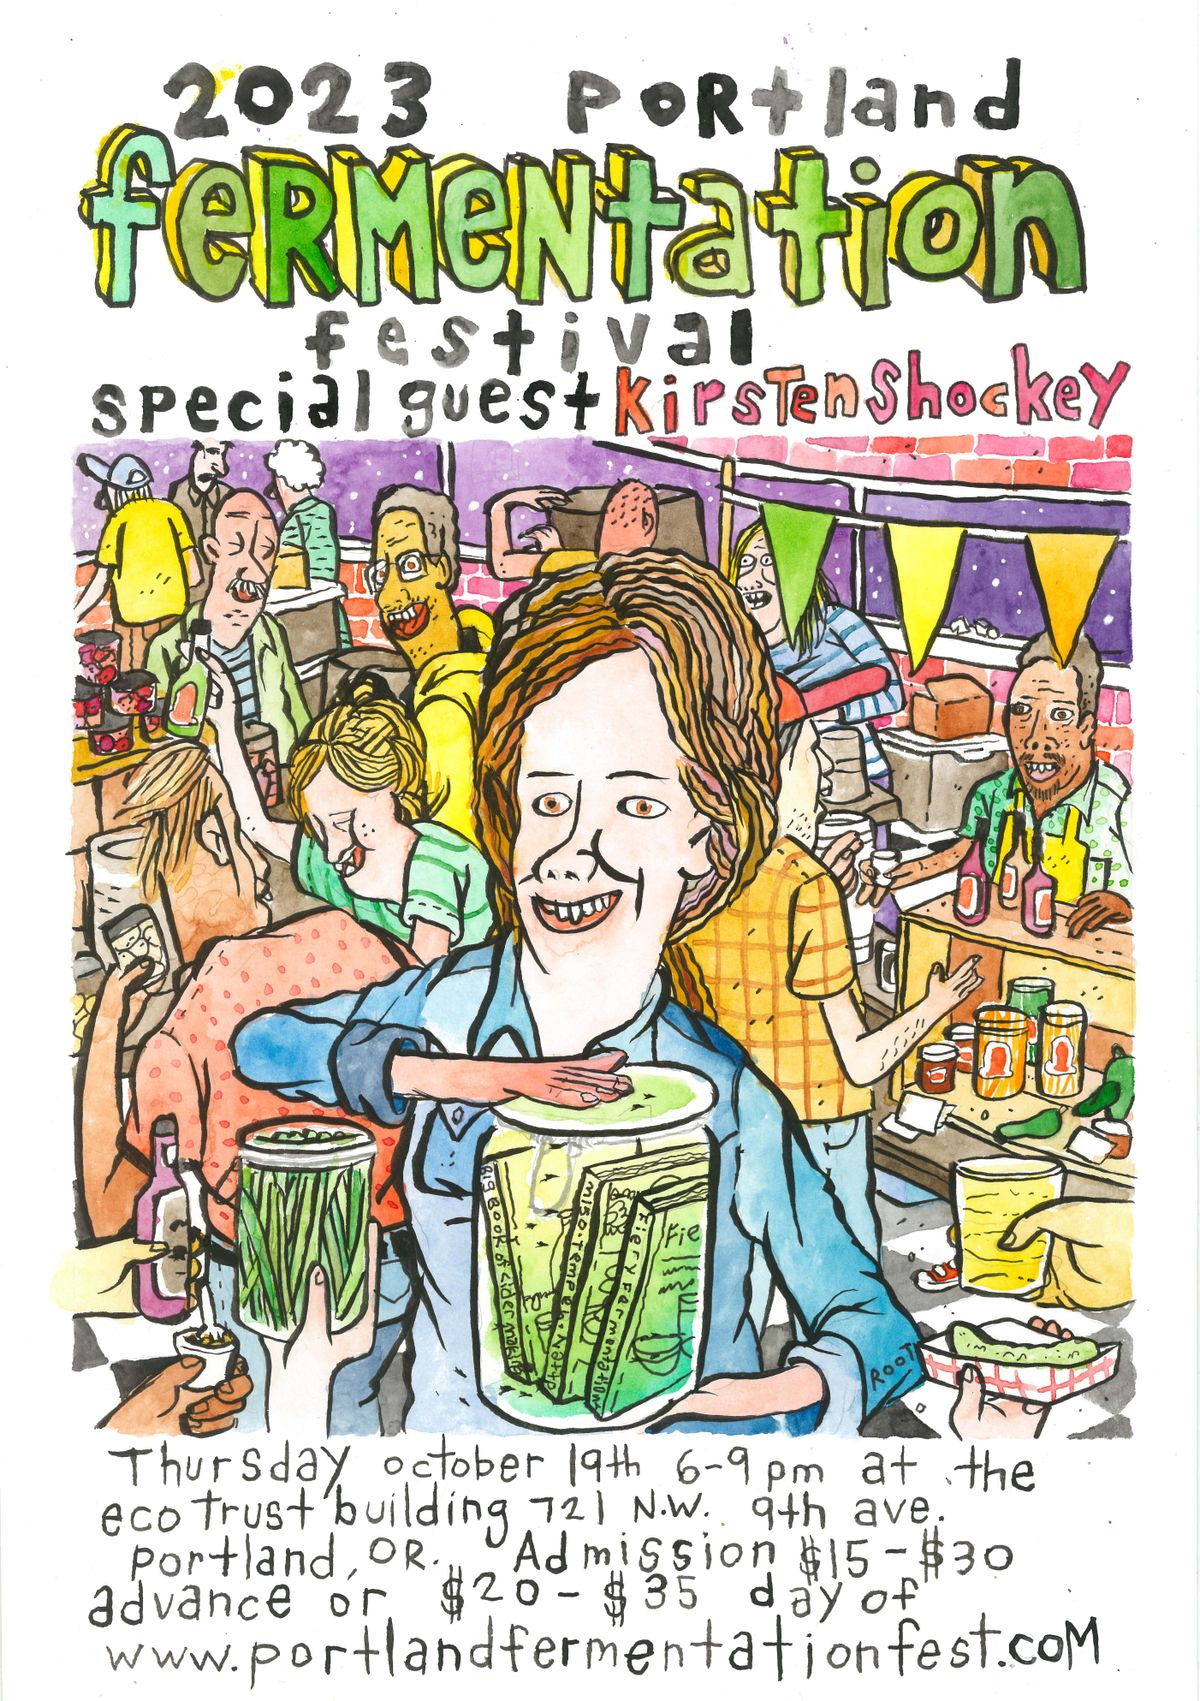 2023 Portland
fermentation
festival
special guest Kirsten Shockey
BIG BOOK OF CIDER MAKING
MISO.TEMPEH.NATTO
FIERY FERMENTATION
Fie
ROOT
Thursday october 19th 6-9pm at the
ecotrust building 721 N.W. 9th ave.
portland, OR. Admission $15-$30
advance or $20-$35 day of
www.portlandfermentationfest.com